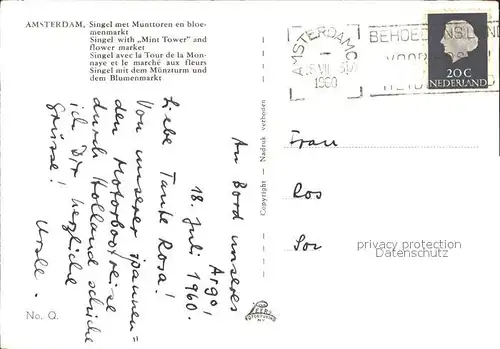 AMSTERDAM, Singel met Munttoren en bloe-
menmarkt
Singel with „Mint Tower" and
flower market
Singel avec la Tour de la Mon-
naye et le marché aux fleurs
Singel mit dem Münzturm und
dem Blumenmarkt
AMSTERDAM
1960
NEDERLAND
20 C
An Bord unseres
Argo,
18. Juli 1960.
Liebe Tante Rosa!
Von unserer spannen=
den Motorbootreise
durch Holland schicke
ich Dir herzliche
Grüsse! Ursle.
Copyright — Nadruk verboten
Frau
Ros
privacy protection
Datenschutz
No. Q.